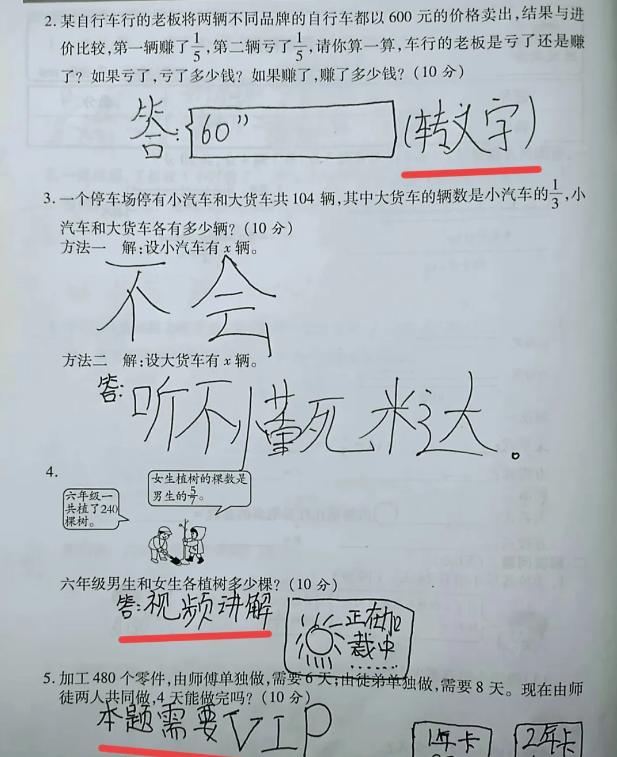 2. 某自行车行的老板将两辆不同品牌的自行车都以 600 元的价格卖出,结果与进
价比较,第一辆赚了1/5,第二辆亏了1/5,请你算一算,车行的老板是亏了还是赚
了?如果亏了,亏了多少钱?如果赚了,赚了多少钱?(10 分)
答:{60" (转文字)
3. 一个停车场停有小汽车和大货车共 104 辆,其中大货车的辆数是小汽车的1/3,小
汽车和大货车各有多少辆?(10 分)
方法一 解:设小汽车有 x 辆。
不会
方法二 解:设大货车有 x 辆。
答:听不懂死米达。
4.
女生植树的棵数是
男生的5/7。
六年级一
共植了240
棵树。
六年级男生和女生各植树多少棵?(10 分)
答:视频讲解
正在加
裁中
5. 加工 480 个零件,由师傅单独做,需要 6 天;由徒弟单独做,需要 8 天。现在由师
徒两人共同做,4 天能做完吗?(10 分)
本题需要VIP
1年卡
2年卡